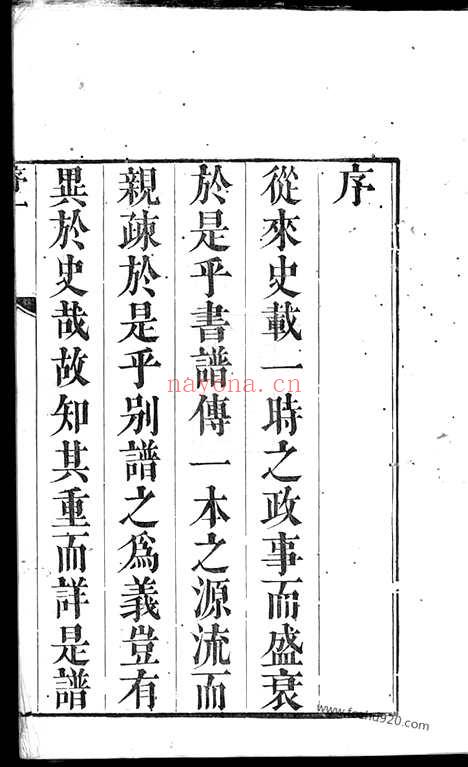 序
從來史載一時之政事而盛衰
於是乎書譜傳一本之源流而
親疎於是乎別譜之爲義豈有
異於史哉故知其重而詳是譜
nayona.cn
www.fozhu920.com